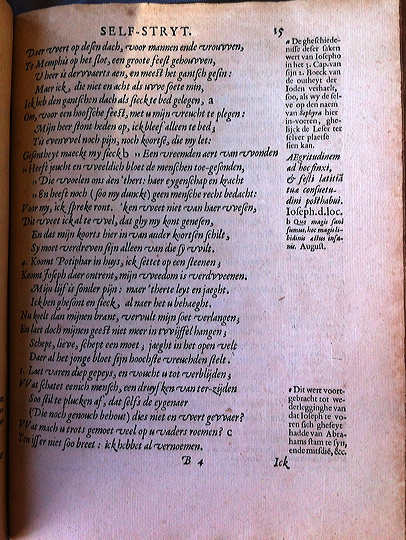 SELF-STRYT. 15
Daer wert op desen dach, voor mannen ende vrouwen,
Te Memphis op het slot, een groote feest gehouwen,
V heer is derwaerts aen, en meest het gantsch gesin:
Maer ick, die niet en acht als uwe soete min,
Ick heb den gantschen dach als sieck te bed gelegen, a
Om, voor een hoofsche feest, met u mijn vreucht te plegen:
Mijn heer stont heden op, ick bleef alleen te bed,
Tu evenvoel noch pijn, noch koortse, die my let:
Gesontheyt maeckt my sieck b „ Een vreemden aert van wonden
„ Heeft jeucht en weeldich bloet de menschen toe-gesonden,
„ Die woelen ons aen 't hert: haer eygenschap en kracht
„ En heeft noch (soo my dunckt) geen mensche recht bedacht:
Voor my, ick spreke ront, 'ken weet niet van haer wesen,
Dit weet ick al te wel, dat ghy my kont genesen,
En dat mijn koorts hier in van ander koortsen schilt,
Sy moet verdreven sijn alleen van die sy wilt.
4. Koomt Potiphar in huys, ick sittet op een steenen;
Koomt Joseph daer ontrent, mijn weedom is verdwenen.
Mijn lijf is sonder pijn: maer 't herte leyt en jaeght.
Ick ben ghesont en sieck, al naer het u behaeght.
Nu koelt dan mijnen brant, vervult mijn soet verlangen;
En laet doch mijnen geest niet meer in twijffel hangen;
Schept, lieve, schept een moet; jaeght in het open velt
Daer al het jonge bloet sijn hoochste vreuchden stelt.
1. Laet varen diep gepeys, en voucht u tot verblijden;
VVat schaetet eenich mensch, een druyf ken van ter-zijden
Soo stil te plucken af, dat selfs de eygenaer
(Die noch genouch behout) dies niet en wert gewaer?
VVat mach u trots gemoet veel op u vaders roemen? c
Ten isser niet soo breet: ick hebbet al vernoemen.
B 4 Ick
a De gheschiede-
nisse deser saken
wert van Iosepho
in het 3. Cap. van
sijn 2. Boeck van
de outheyt der
Ioden verhaelt,
soo, als wy de sel-
ve op den naem
van Sephyra hier
in-voeren, ghe-
lijck de Leser ter
selver plaetse
sien kan.
AEgritudinem
ad hoc finxi,
& festi lætitiâ
tua consuetu-
dini posthabui.
Ioseph. d. loc.
b Quo magis sani
sumus, hoc magis li-
bidinis æstus insa-
nit. August.
c Dit wert voort-
gebracht tot we-
derlegginghe van
dat Ioseph te vo-
ren sich gheseyt
hadde van Abra-
hams stam te syn,
ende mitsdien, &c.